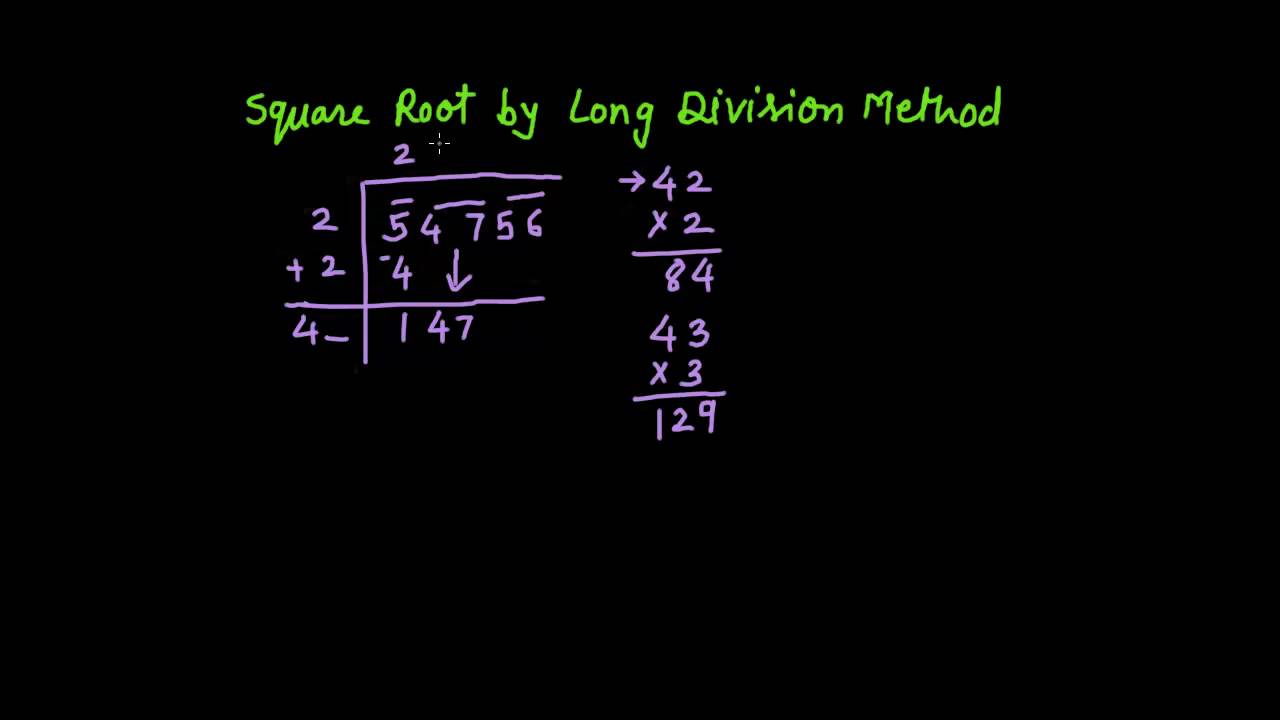 Square Root by Long Division Method
2
2 5 4 7 5 6
+ 2 -4 ↓
4 _ 1 4 7
→ 4 2
× 2
8 4
4 3
× 3
1 2 9